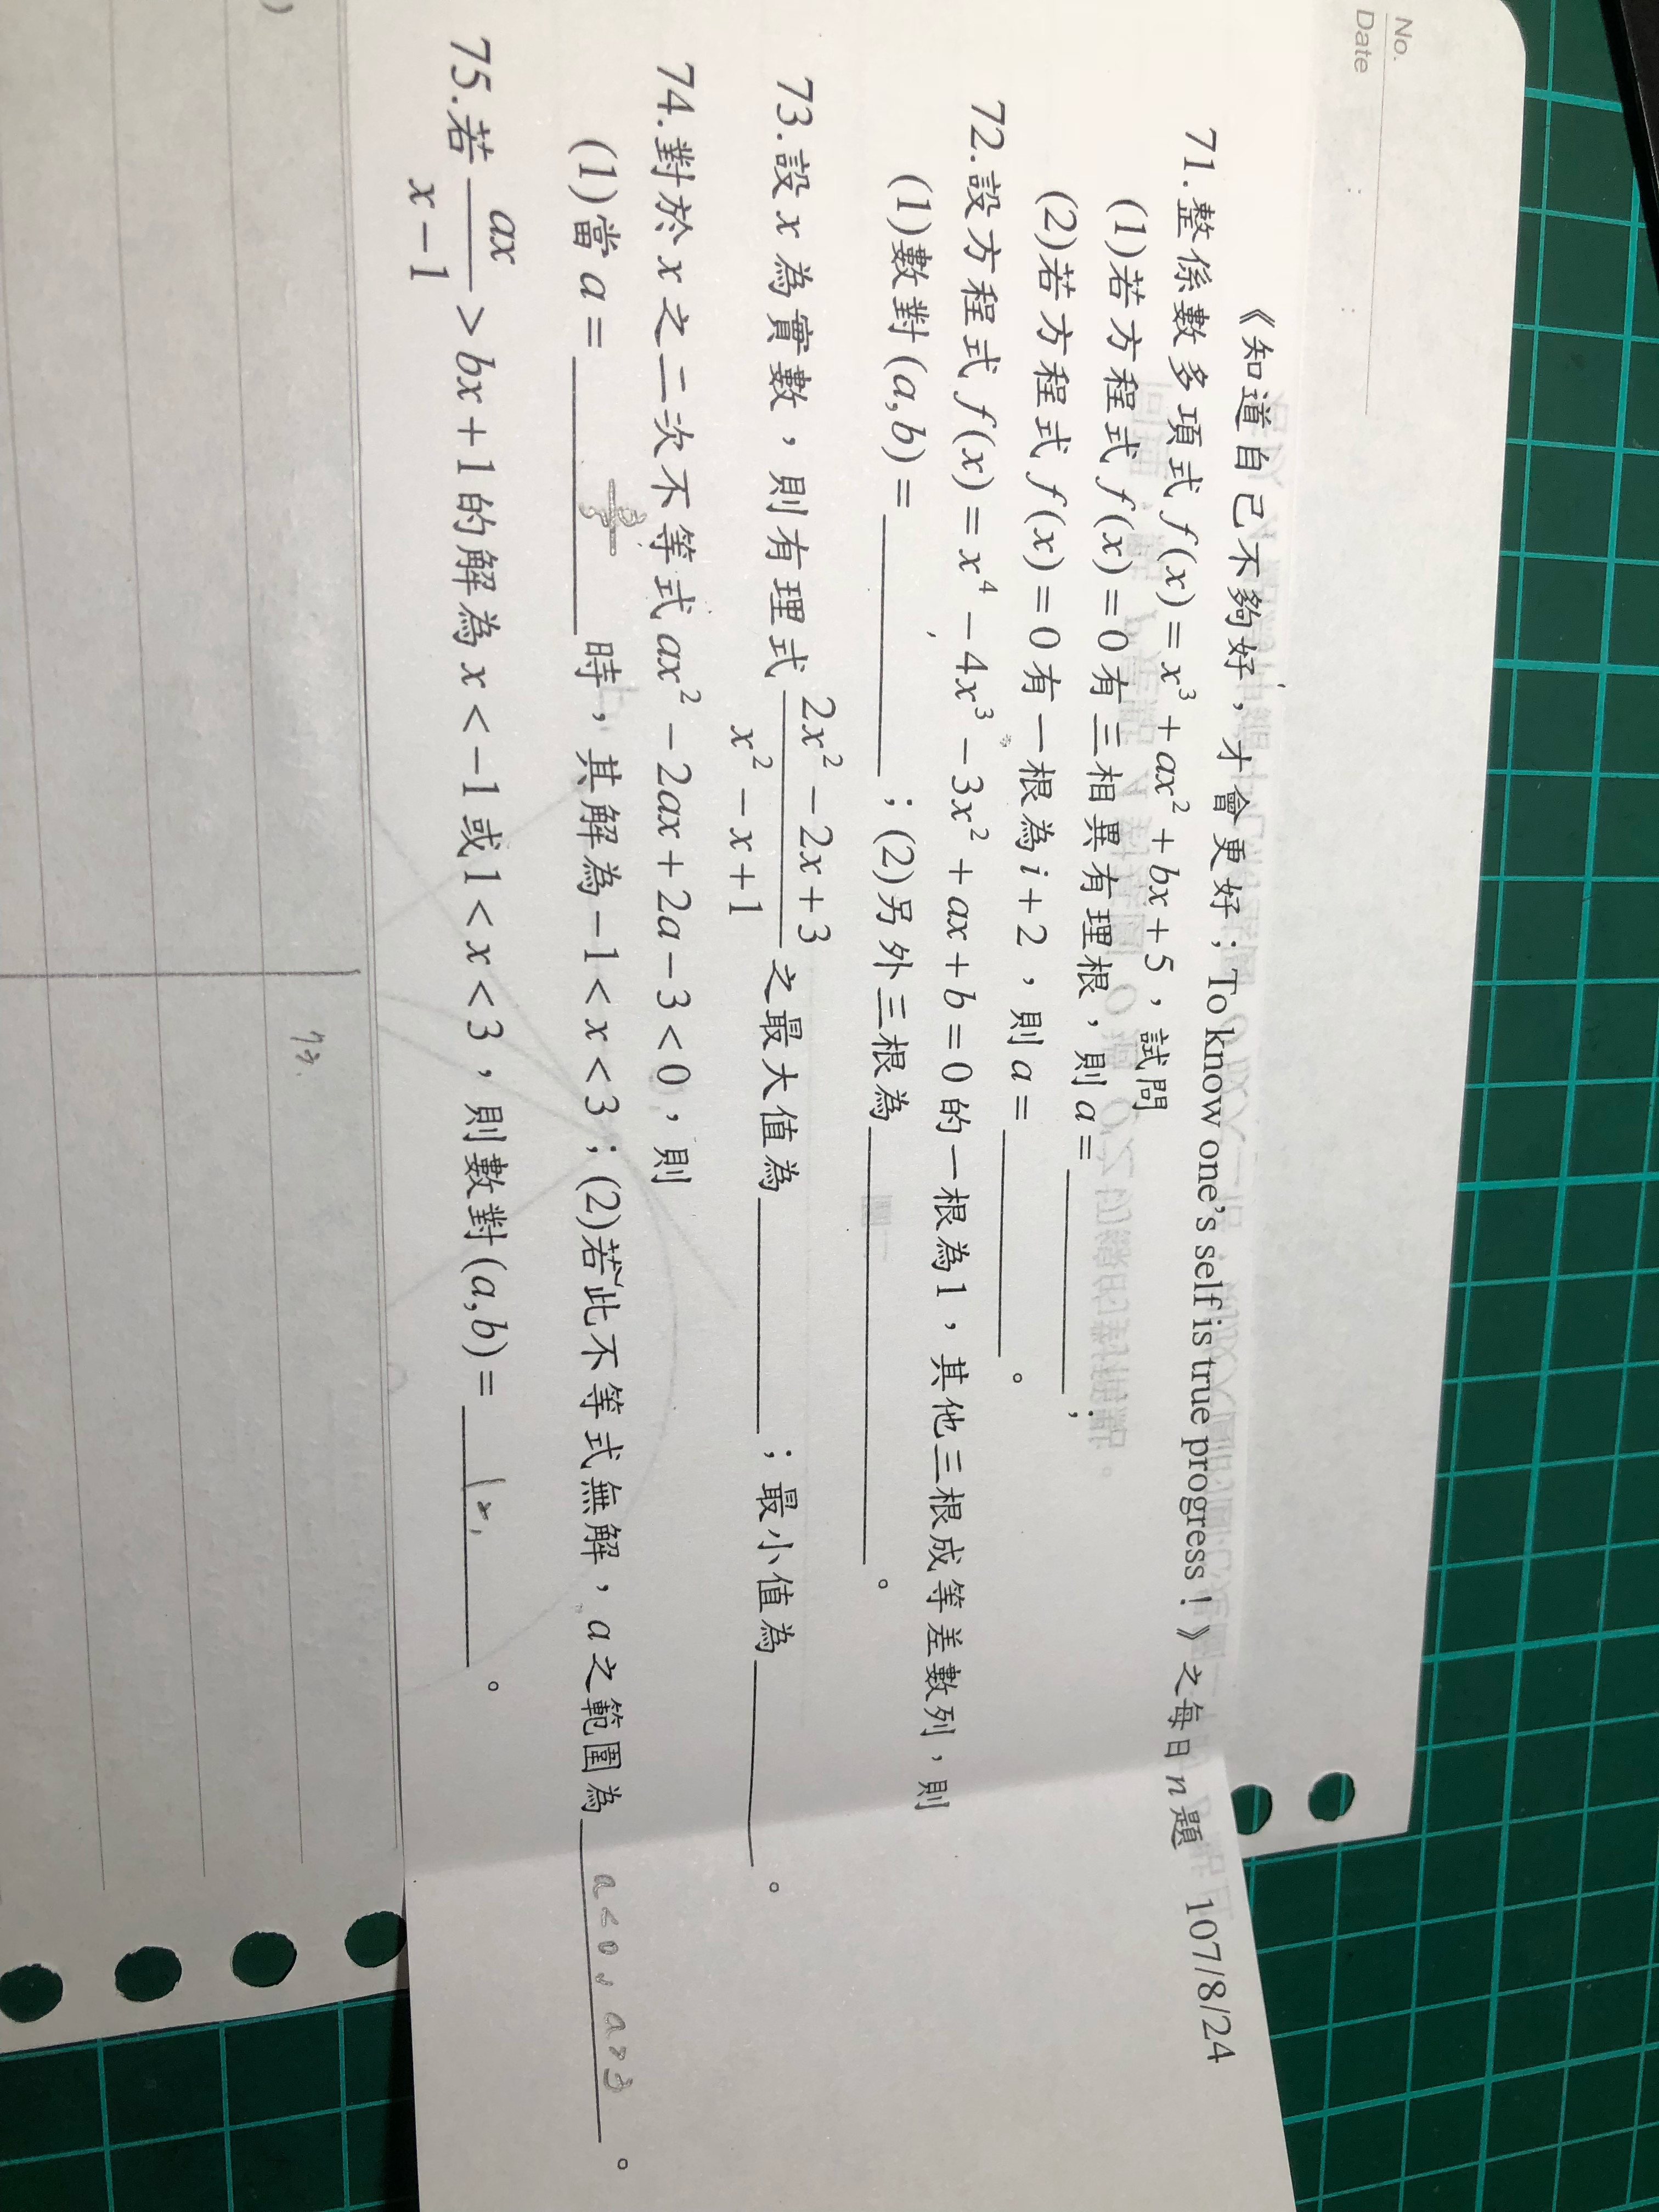 No.
Date
《知道自己不夠好，才會更好；To know one's self is true progress！》之每日 n 題 107/8/24
71.整係數多項式 f(x)=x³+ax²+bx+5，試問
(1)若方程式 f(x)=0 有三相異有理根，則 a=＿＿＿＿；
(2)若方程式 f(x)=0 有一根為 i+2，則 a=＿＿＿＿。
72.設方程式 f(x)=x⁴-4x³-3x²+ax+b=0 的一根為1，其他三根成等差數列，則
(1)數對(a,b)=＿＿＿＿；(2)另外三根為＿＿＿＿。
73.設 x 為實數，則有理式 (2x²-2x+3)/(x²-x+1) 之最大值為＿＿＿＿；最小值為＿＿＿＿。
74.對於 x 之二次不等式 ax²-2ax+2a-3<0，則
(1)當 a=＿＿＿＿時，其解為-1<x<3；(2)若此不等式無解，a 之範圍為 a<0, a>3。
75.若 ax/(x-1) > bx+1 的解為 x<-1 或 1<x<3，則數對(a,b)=＿＿＿＿。
73.